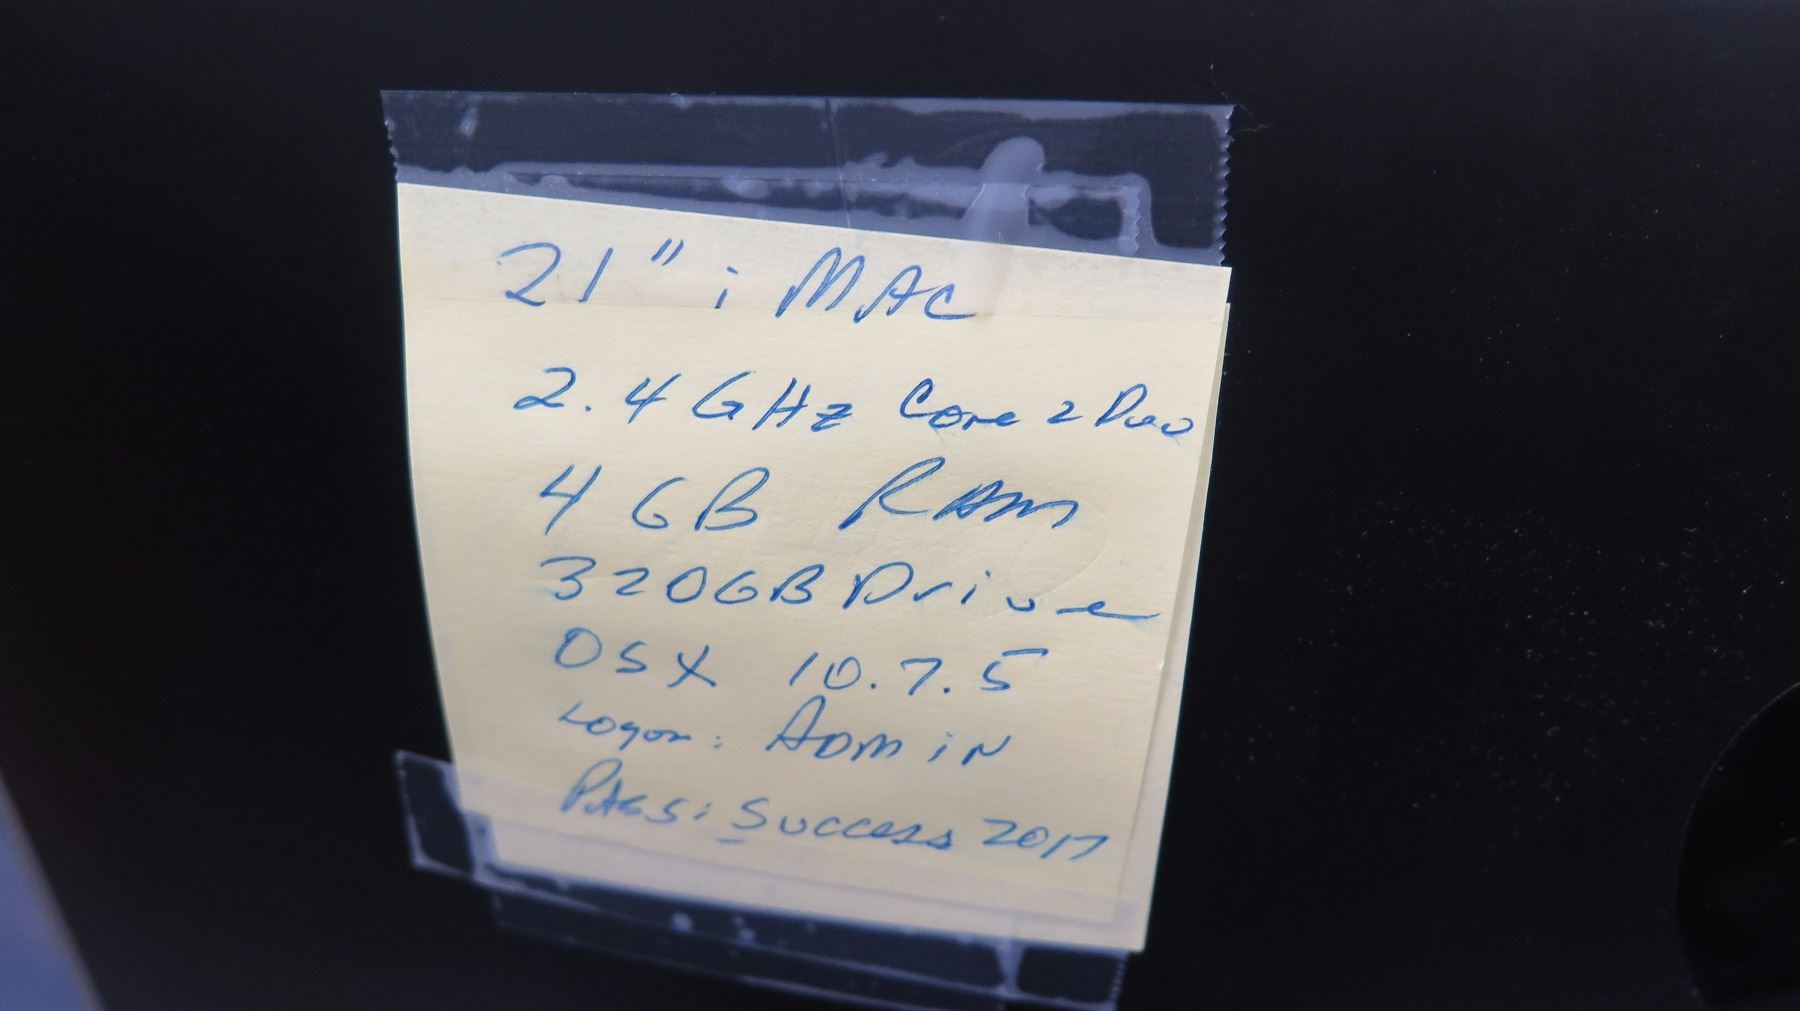 21" iMAC
2.4 GHz Core 2 Duo
4 GB RAM
320GB Drive
OSX 10.7.5
Logon: ADMiN
PASS: Success 2017